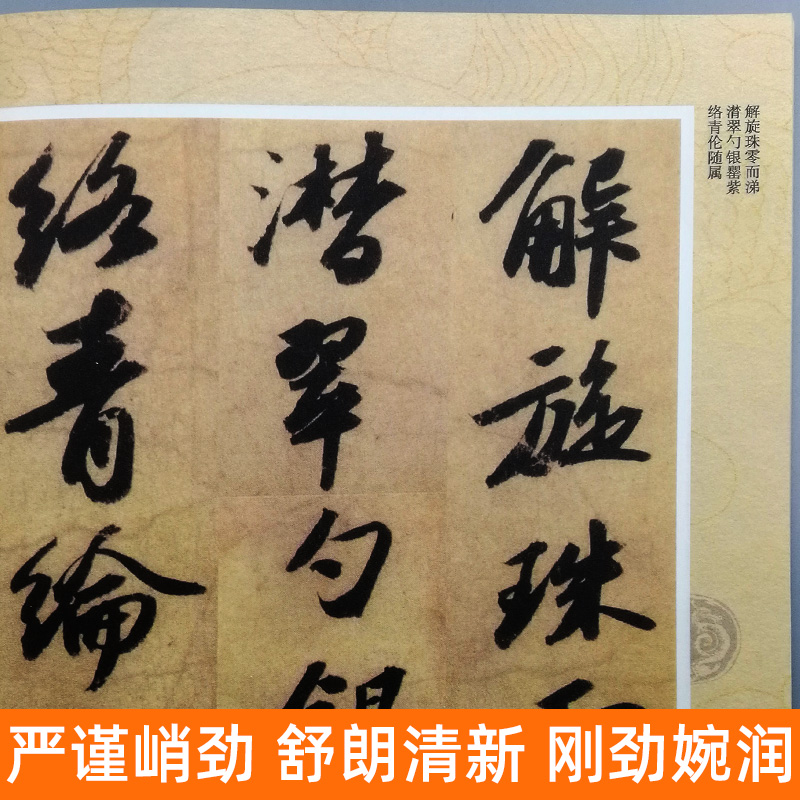 解旋珠零而涕
潸翠勺银罂紫
络青伦随属
解旋珠
潸翠勺
絡青綸
严谨峭劲 舒朗清新 刚劲婉润